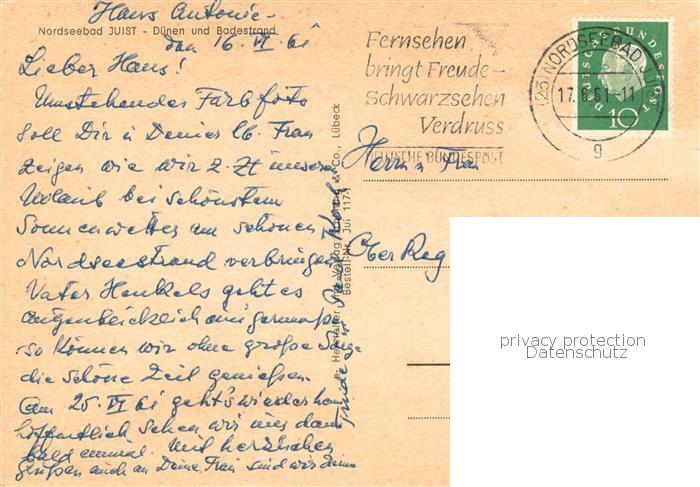 Hans Antonie -
Nordseebad JUIST - Dünen und Badestrand
den 16. VI 61
Lieber Hans!
Umstehendes Farbfoto
soll Dir u. Deiner lb. Frau
zeigen wie wir z. Zt unseren
Urlaub bei schönstem
Sonnenwetter am schönen
Nordseestrand verbringen
Vater Henkels geht es
augenblicklich einigermaßen
so können wir ohne große Sorge
die schöne Zeit genießen.
Am 25. VI 61 geht's wieder heim
hoffentlich sehen wir uns dann
bald einmal. Mit herzlichen
Grüßen auch an Deine Frau sind wir Deine
Fernsehen
bringt Freude -
Schwarzsehen
Verdruss
DEUTSCHE BUNDESPOST
(23) NORDSEEBAD JUIST
17.6.61-11
g
DEUTSCHE BUNDESPOST
10
Herrn u. Frau
Ober Reg
Hersteller Verlag & Co., Lübeck
Bestell-Nr. Jui 117
privacy protection
Datenschutz